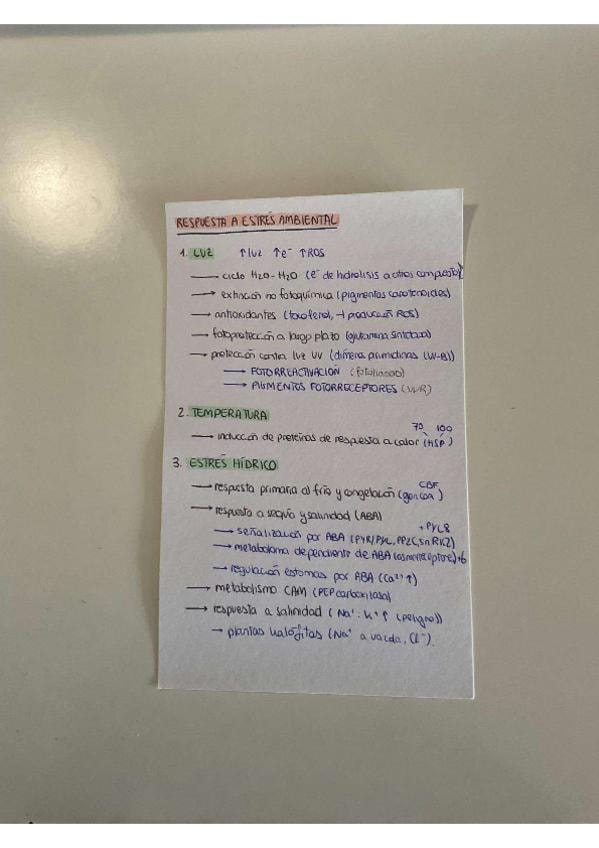 RESPUESTA A ESTRÉS AMBIENTAL
1. LUZ ↑luz ↑e⁻ ↑ROS
→ ciclo H2O-H2O (e⁻ de hidrolisis a otros compuestos)
→ extinción no fotoquímica (pigmentos carotenoides)
→ antioxidantes (tocoferol, ⊣ producción ROS)
→ fotoprotección a largo plazo (glutamina sintetasa)
→ protección contra luz UV (dímera pirimidinas (UV-B))
→ FOTORREACTIVACIÓN (fotoliasas)
→ PIGMENTOS FOTORRECEPTORES (UVR)
2. TEMPERATURA
70 100
→ inducción de proteínas de respuesta a calor (HSP)
3. ESTRÉS HÍDRICO
CBF
→ respuesta primaria al frío y congelación
→ respuesta a sequía y salinidad (ABA)
+ PYL8
→ señalización por ABA (PYR/PYL, PP2C, SnRK2)
→ metaboloma dependiente de ABA
→ regulación estomas por ABA (Ca²⁺↑)
→ metabolismo CAM (PEP carboxilasa)
→ respuesta a salinidad (Na⁺: K⁺ ↑ (peligro))
→ plantas halófitas (Na⁺ a vacuola, Cl⁻).